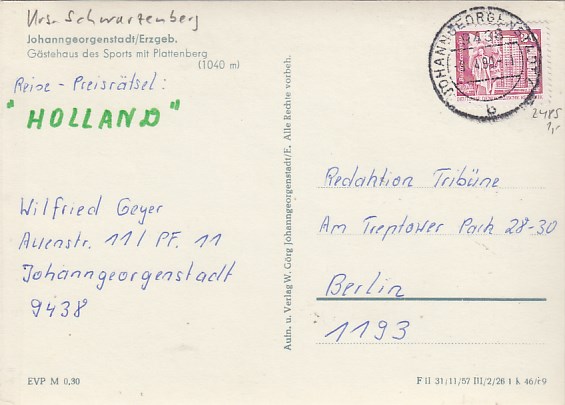 Krs. Schwarzenberg
Johanngeorgenstadt/Erzgeb.
Gästehaus des Sports mit Plattenberg
(1040 m)
Reise-Preisrätsel:
"HOLLAND"
Wilfried Geyer
Auenstr. 11 / PF. 11
Johanngeorgenstadt
9438
EVP M 0,30
Aufn. u. Verlag W. Görg Johanngeorgenstadt/E. Alle Rechte vorbeh.
JOHANNGEORGENSTADT
9438
b
2485
1,-
Redaktion Tribüne
Am Treptower Park 28-30
Berlin
1193
F II 31/11/57 III/2/26 1 k 46/69